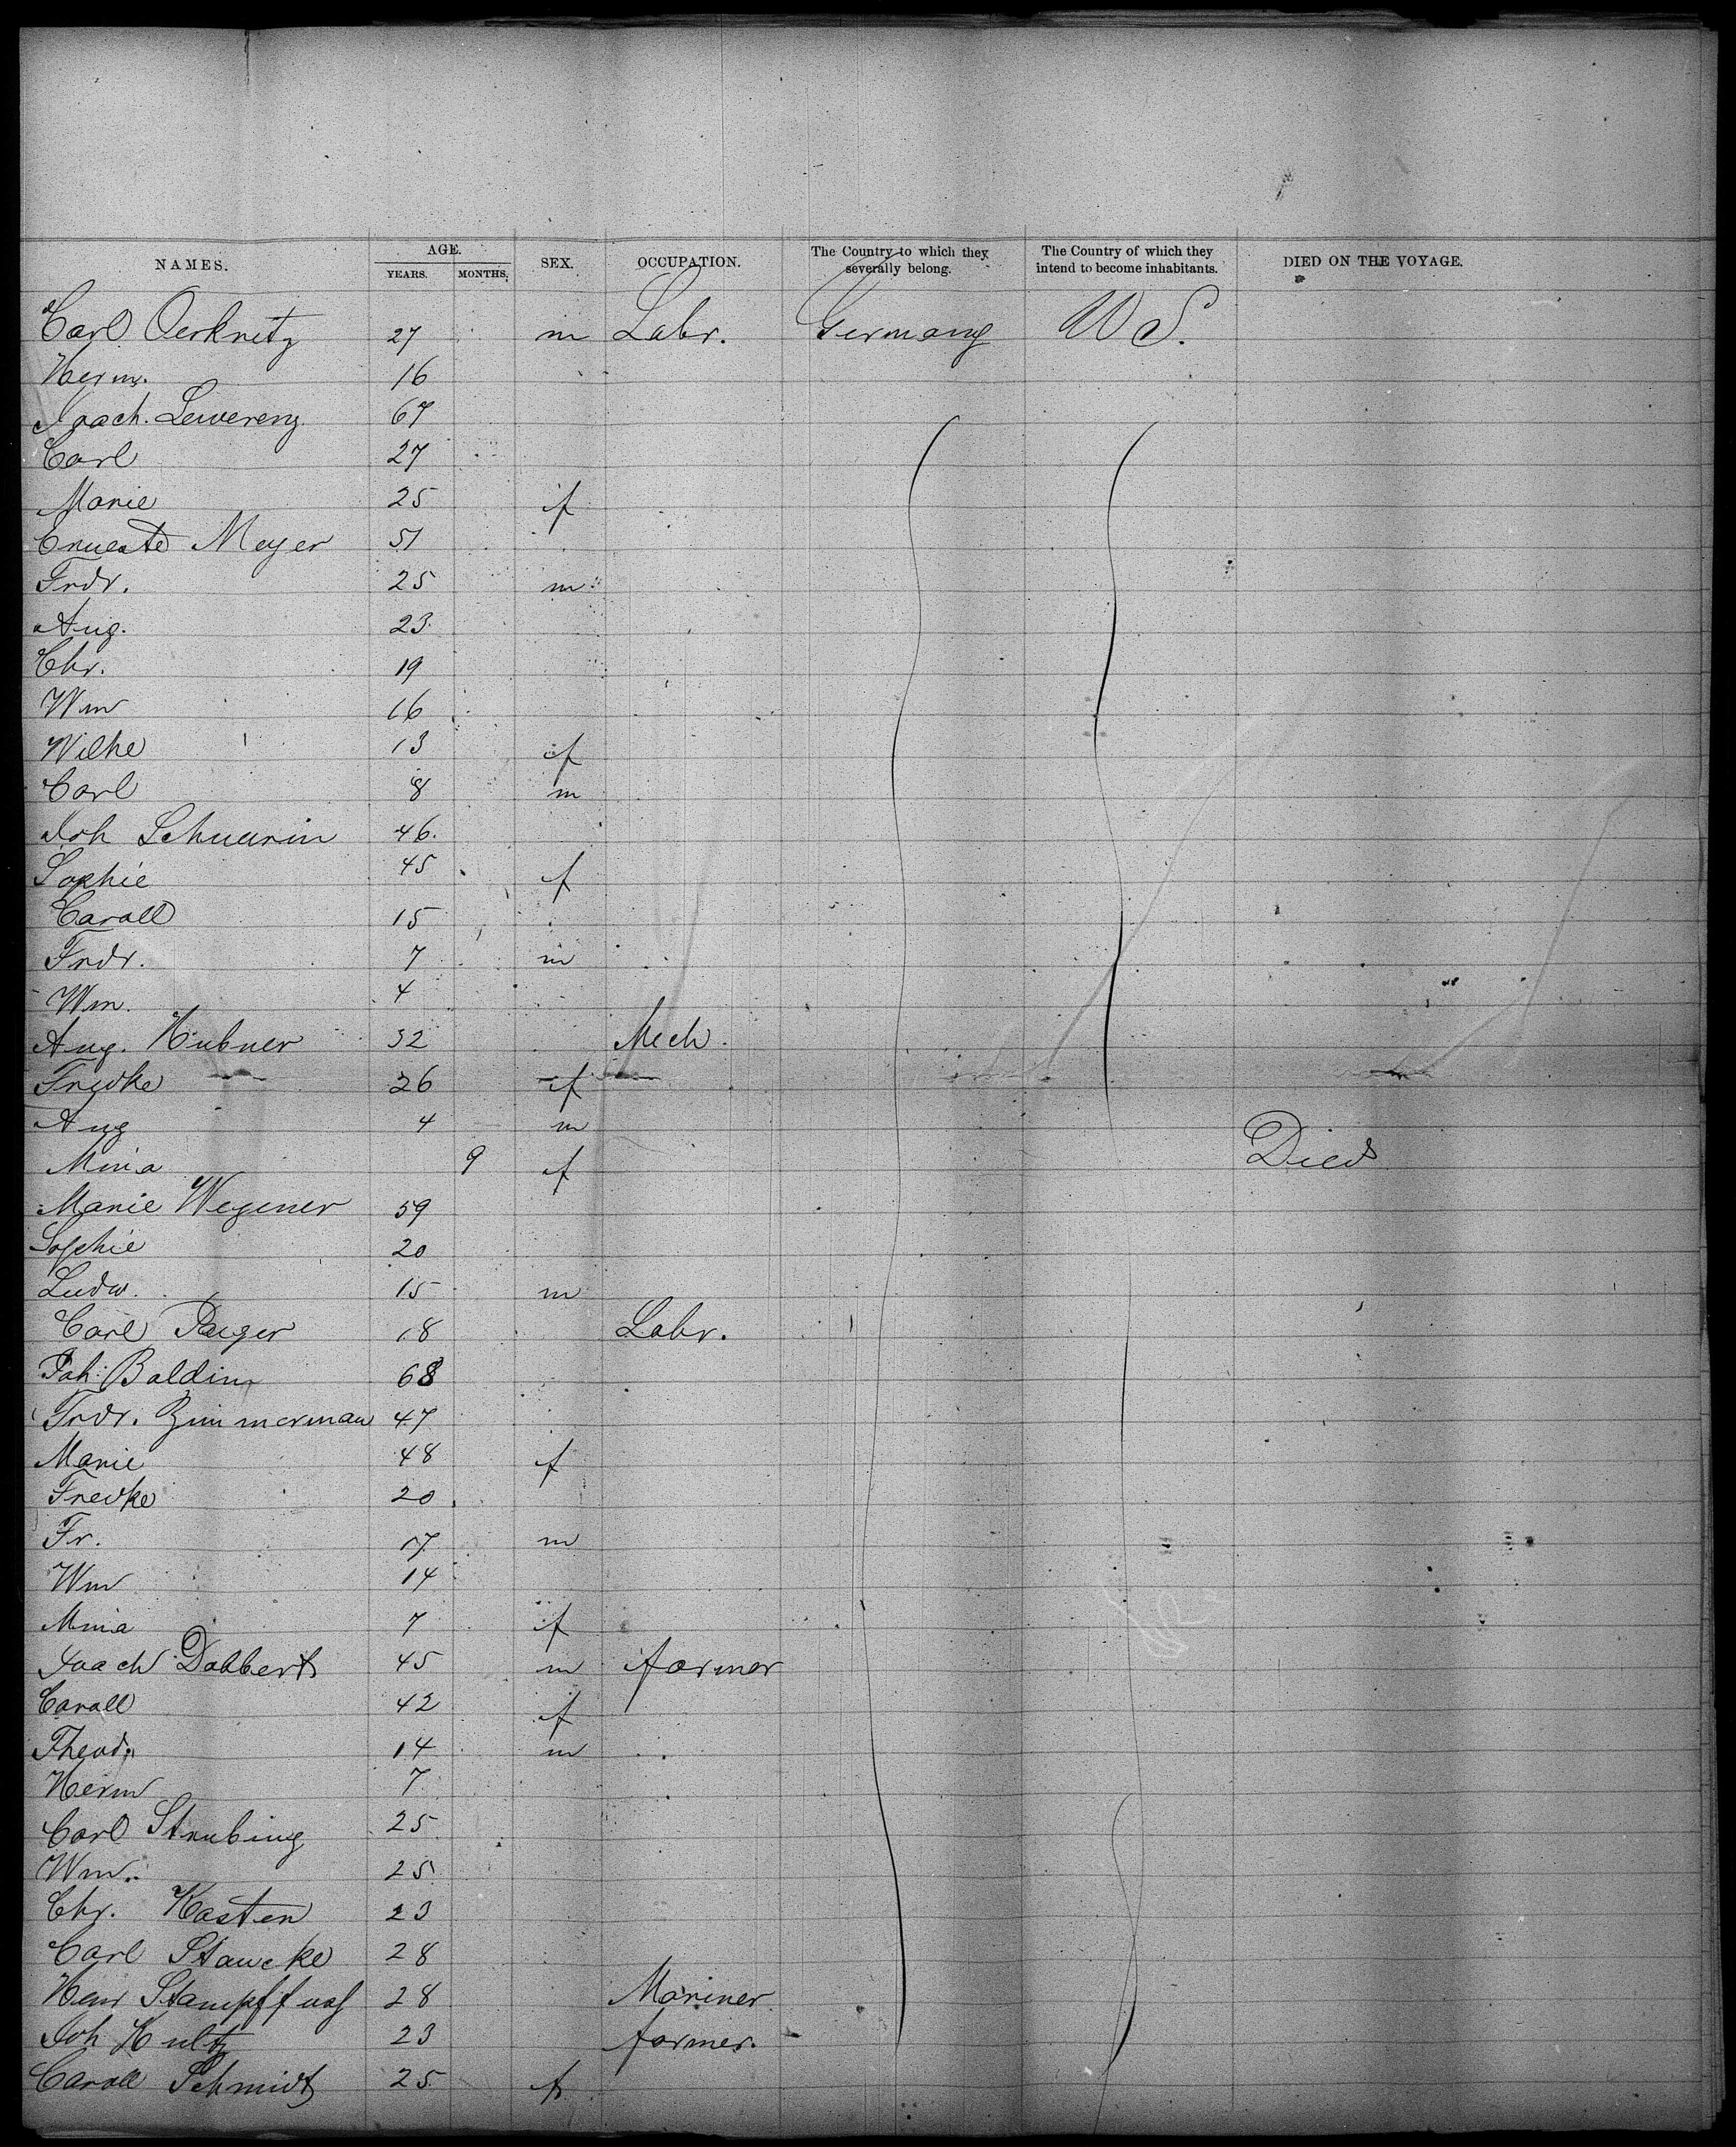 NAMES. AGE. YEARS. MONTHS. SEX. OCCUPATION. The Country to which they severally belong. The Country of which they intend to become inhabitants. DIED ON THE VOYAGE.
Carl Oerknitz 27 m Labr. Germany US.
Herm. 16
Joach. Lewerenz 67
Carl 27
Marie 25 f
Erneste Meyer 51
Frdr. 25 m
Aug. 23
Chr. 19
Wm 16
Wilhe 13 f
Carl 8 m
Joh Schuurin 46.
Sophie 45 f
Caroll 15
Frdr. 7 m
Wm. 4
Aug. Hubner 32 Mech.
Fredke 26 f
Aug 4 m
Mina 9 f Died
Marie Wegener 59
Sophie 20
Ludw. 15 m
Carl Paeger 18 Labr.
Joh. Baldin 68
Frdr. Zimmerman 47
Marie 48 f
Fredke 20
Fr. 17 m
Wm 14
Mina 7 f
Joach Dobbert 45 m farmer
Caroll 42 f
Theod. 14 m
Herm 7
Carl Strubing 25
Wm. 25
Chr. Kasten 23
Carl Stawcke 28
Henr 28 Mariner
Joh Hultz 23 farmer.
Caroll Schmidt 25 f.